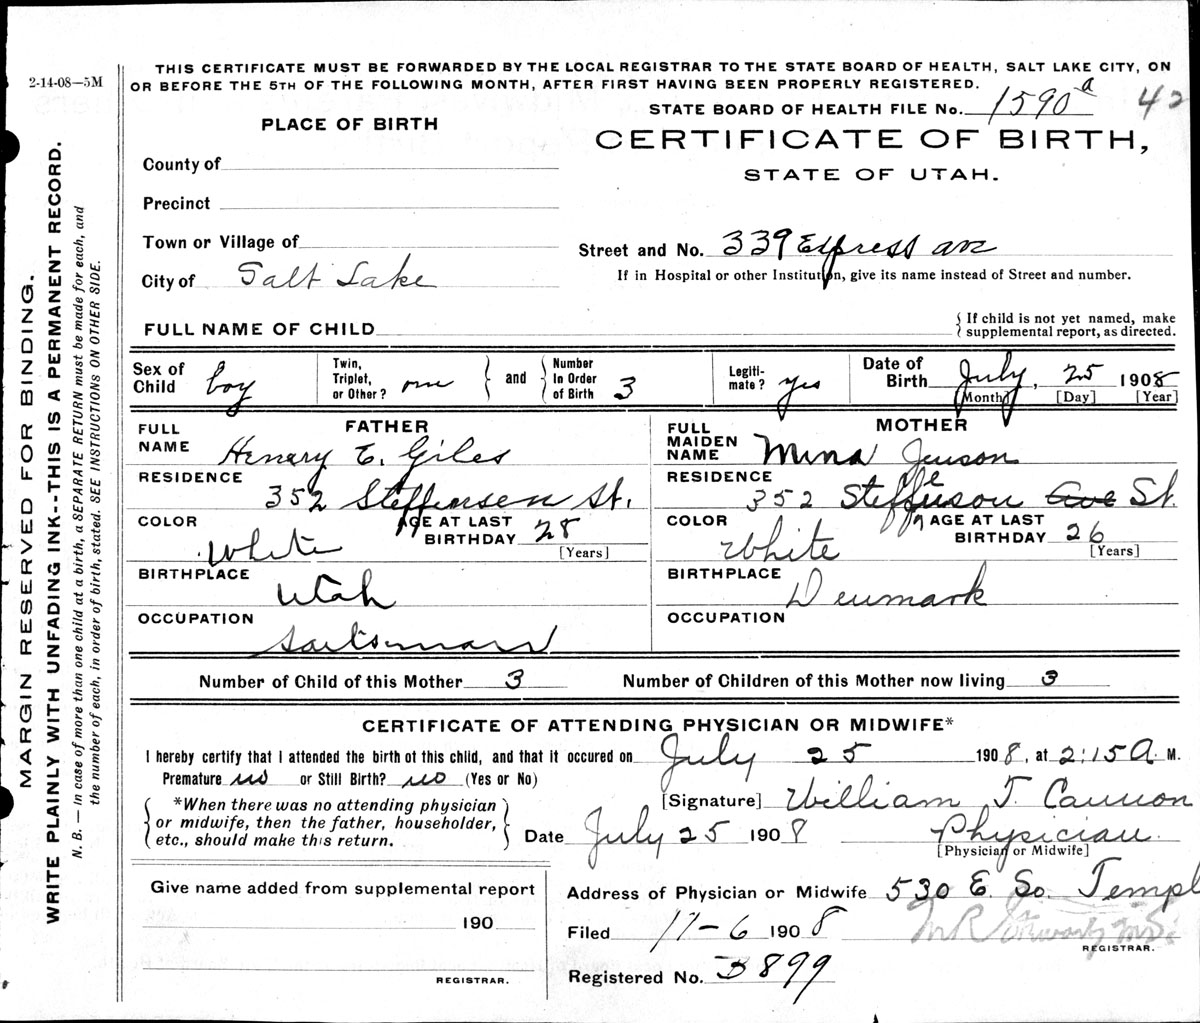 2-14-08—5M
THIS CERTIFICATE MUST BE FORWARDED BY THE LOCAL REGISTRAR TO THE STATE BOARD OF HEALTH, SALT LAKE CITY, ON
OR BEFORE THE 5TH OF THE FOLLOWING MONTH, AFTER FIRST HAVING BEEN PROPERLY REGISTERED.
STATE BOARD OF HEALTH FILE No. 1590 a 42
PLACE OF BIRTH
CERTIFICATE OF BIRTH,
STATE OF UTAH.
County of
Precinct
Town or Village of
City of Salt Lake
Street and No. 339 Express ave
If in Hospital or other Institution, give its name instead of Street and number.
FULL NAME OF CHILD
{ If child is not yet named, make
supplemental report, as directed.
Sex of Child boy
Twin, Triplet, or Other? one } and { Number In Order of Birth 3
Legitimate? yes
Date of Birth July, 25 1908
[Month] [Day] [Year]
FATHER
FULL NAME Henery E. Giles
RESIDENCE 352 Steffensen St.
COLOR White
AGE AT LAST BIRTHDAY 28 [Years]
BIRTHPLACE Utah
OCCUPATION
MOTHER
FULL MAIDEN NAME Mina Jenson
RESIDENCE 352 St.
COLOR White
AGE AT LAST BIRTHDAY 26 [Years]
BIRTHPLACE Denmark
OCCUPATION
Number of Child of this Mother 3 Number of Children of this Mother now living 3
CERTIFICATE OF ATTENDING PHYSICIAN OR MIDWIFE*
I hereby certify that I attended the birth of this child, and that it occured on July 25 1908, at 2:15 A. M.
Premature no or Still Birth? no (Yes or No)
[Signature] William T. Cannon
{ *When there was no attending physician
or midwife, then the father, householder,
etc., should make this return. }
Date July 25 1908 Physician.
[Physician or Midwife]
Give name added from supplemental report
190
REGISTRAR.
Address of Physician or Midwife 530 E. So. Templ
Filed 11-6 1908
REGISTRAR.
Registered No. 3899
MARGIN RESERVED FOR BINDING.
WRITE PLAINLY WITH UNFADING INK--THIS IS A PERMANENT RECORD.
N. B.—In case of more than one child at a birth, a SEPARATE RETURN must be made for each, and
the number of each, in order of birth, stated. SEE INSTRUCTIONS ON OTHER SIDE.